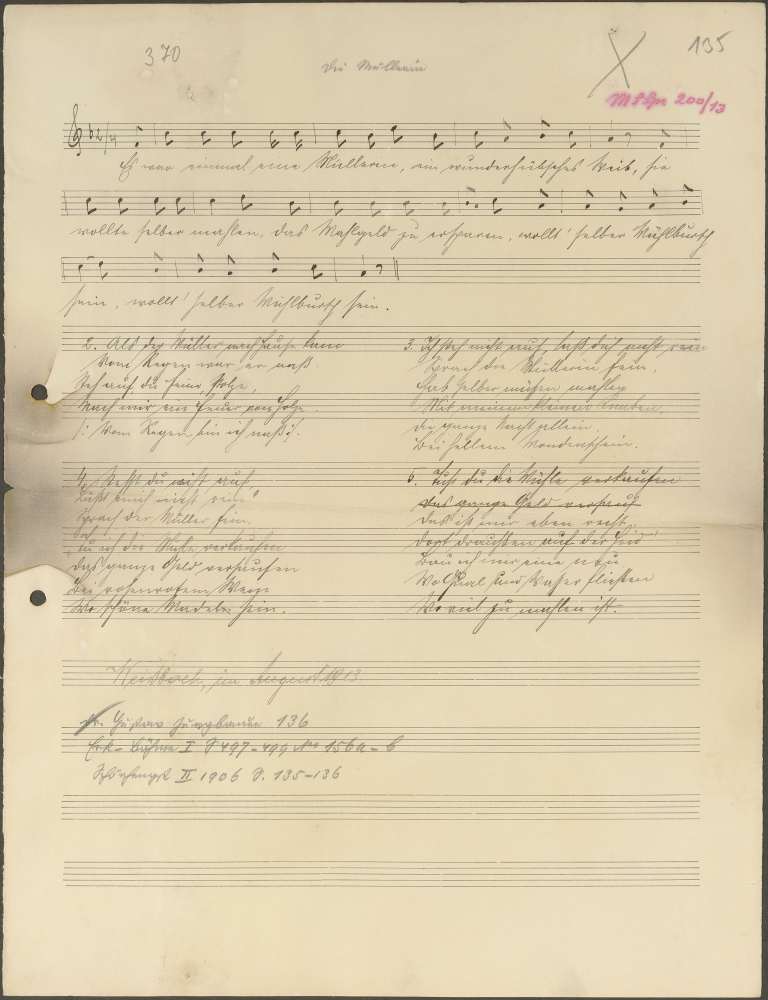 370
135
Die Müllerin
MSSgr 200/13
2/4
Es war einmal eine Müllerin, ein wunderhübsches Weib, sie
wollte selber mahlen, das Mahlgeld zu ersparen, wollt' selber Mühlbursch
sein, wollt' selber Mühlbursch sein.
2. Als der Müller nach Hause kam
Vom Regen war er naß
Steh auf, du feine, Stolze,
Mach mir ein Feuer von Holze.
|: Vom Regen bin ich naß :|.
3. Ich steh nicht auf, laß dich nicht rein
Sprach die Müllerin fein.
Hab selber müssen mahlen
Mit meinen kleinen Knaben,
die ganze Nacht allein.
Bei hellem Mondenschein.
4. Stehst du nicht auf,
Läßt mich nicht rein
Sprach der Müller fein.
Tu ich die Mühle verkaufen
das ganze Geld versaufen
Bei rosenrotem Wein
Wo schöne Madeln sein.
5. Tust du die Mühle verkaufen
das ganze Geld versauf
Das ist mir eben recht,
dort draußen auf der Heid
Bau ich mir eine neu
Wo Waser fließen
Wo viel zu mahlen ist.
im August 1913.
Dr. Gustav Jungbauer 136
Erk-Böhme I S 497-499 No 156a-b
II 1906 S. 135-136